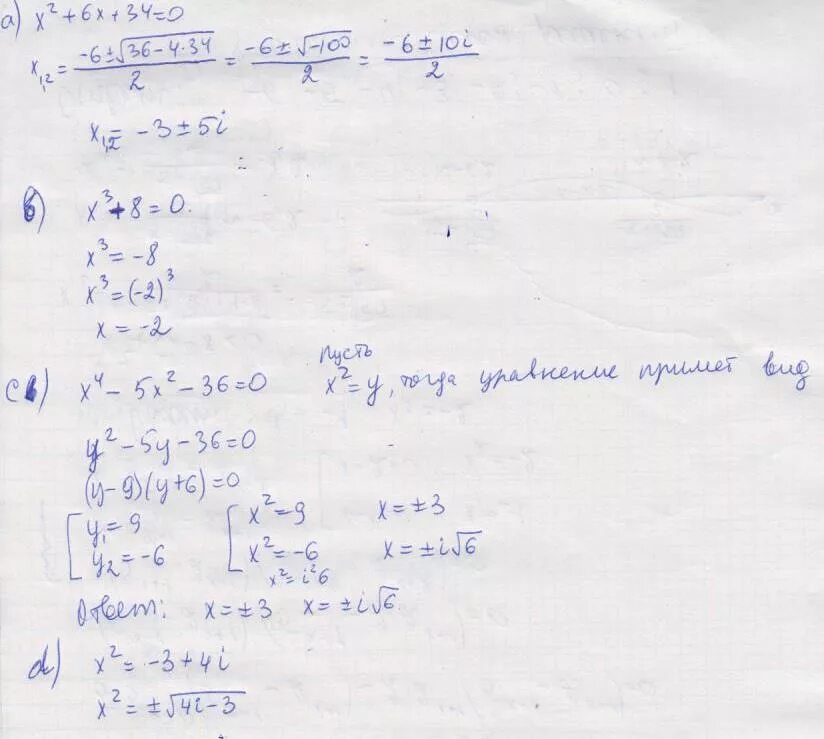 a) x² + 6x + 34 = 0
x₁,₂ = (-6 ± √(36 - 4·34))/2 = (-6 ± √(-100))/2 = (-6 ± 10i)/2
x₁,₂ = -3 ± 5i
b) x³ + 8 = 0
x³ = -8
x³ = (-2)³
x = -2
c) x⁴ - 5x² - 36 = 0 Пусть x² = y, тогда уравнение примет вид
y² - 5y - 36 = 0
(y - 9)(y + 6) = 0
[ y₁ = 9 [ x² = 9 x = ± 3
y₂ = -6 x² = -6 x = ± i√6
x² = i²6
Ответ: x = ± 3 x = ± i√6
d) x² = -3 + 4i
x² = ± √(4i - 3)